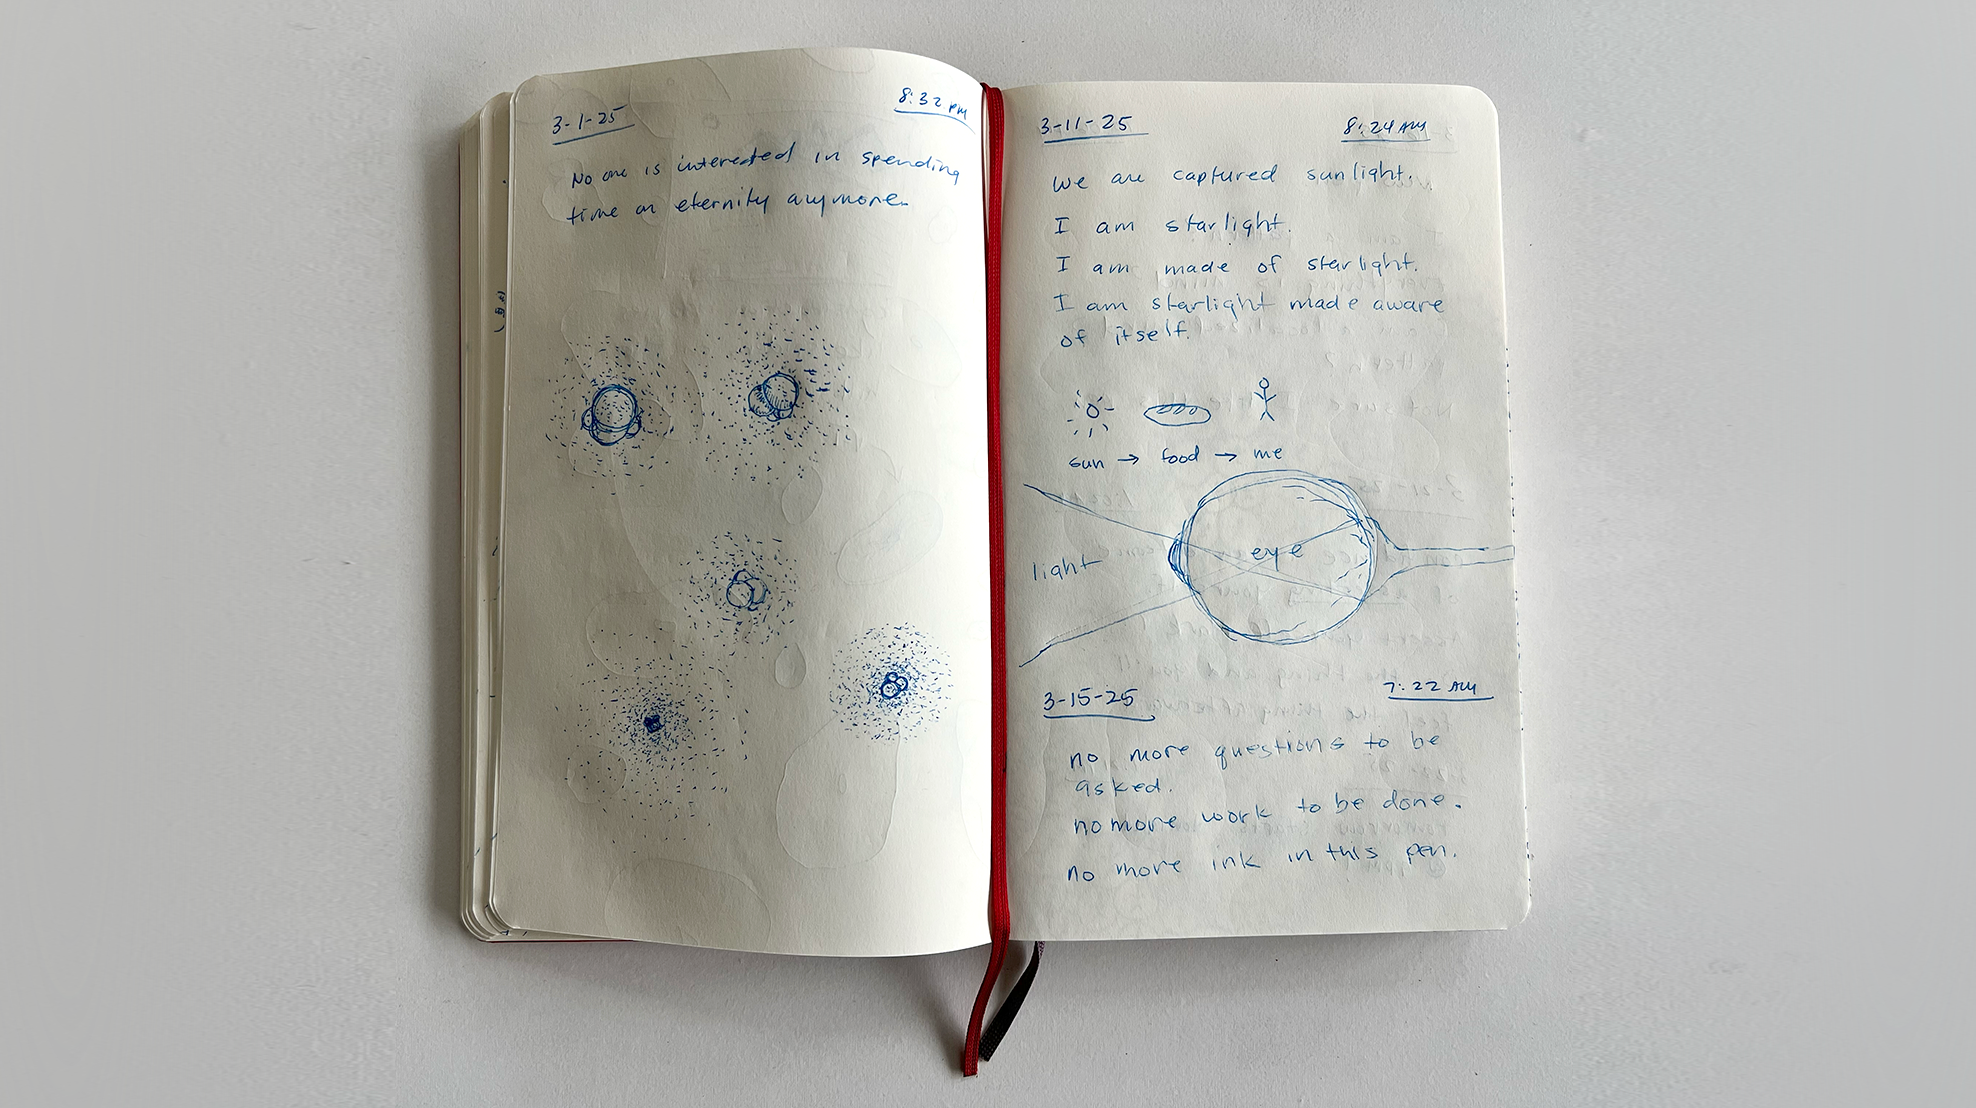 3-1-25
8:32 PM
No one is interested in spending
time on eternity anymore.
3-11-25
8:24 AM
We are captured sunlight.
I am starlight.
I am made of starlight.
I am starlight made aware
of itself.
sun → food → me
eye
light
3-15-25
7:22 AM
no more questions to be
asked.
no more work to be done.
no more ink in this pen.